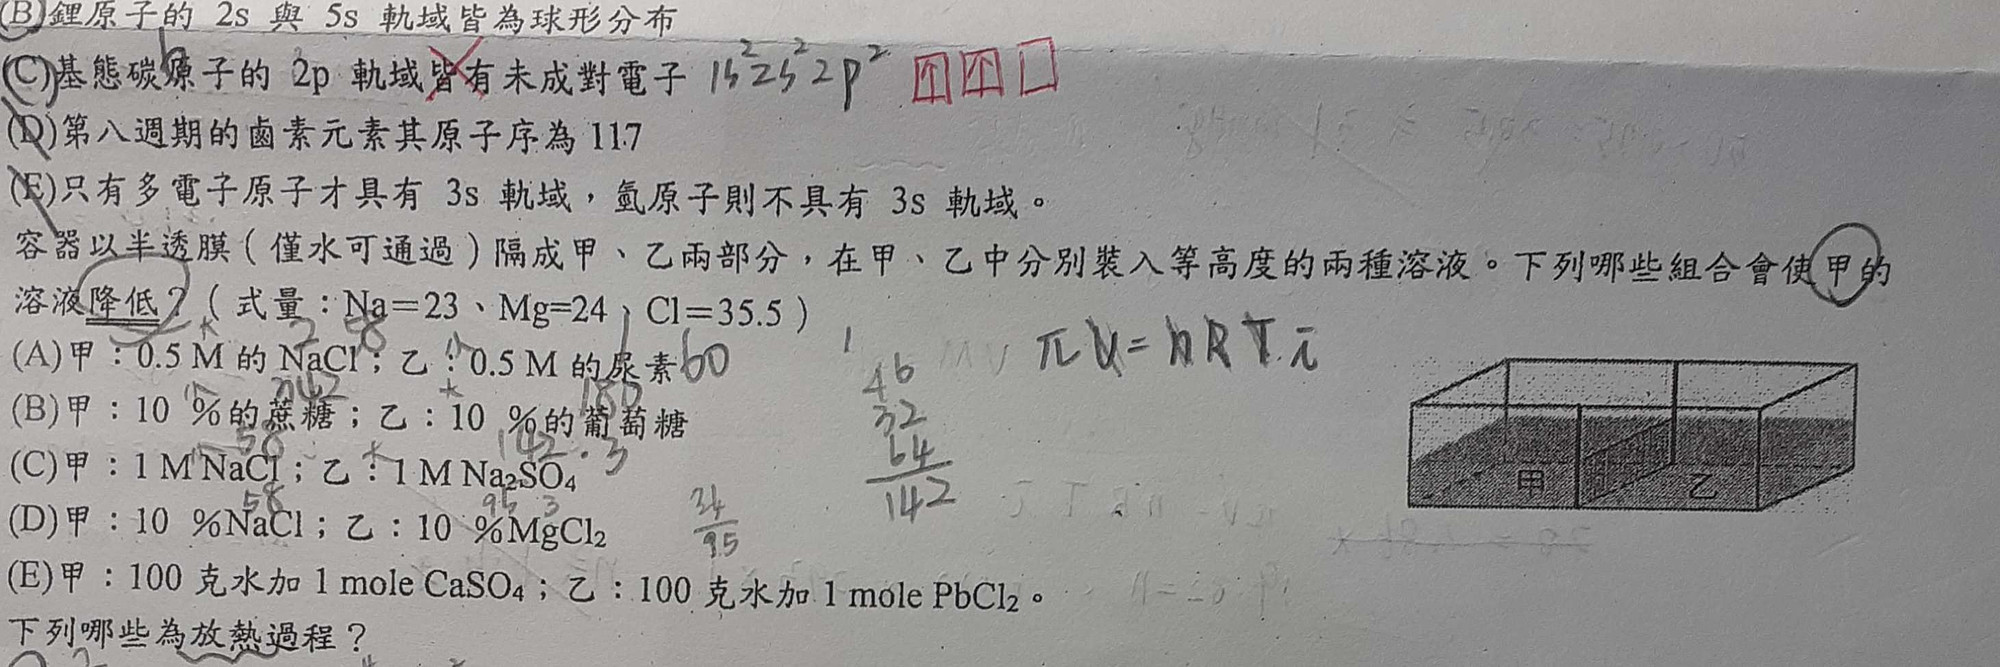 (B)鋰原子的 2s 與 5s 軌域皆為球形分布
(C)基態碳原子的 2p 軌域皆有未成對電子 1s²2s²2p²
(D)第八週期的鹵素元素其原子序為 117
(E)只有多電子原子才具有 3s 軌域，氫原子則不具有 3s 軌域。
容器以半透膜（僅水可通過）隔成甲、乙兩部分，在甲、乙中分別裝入等高度的兩種溶液。下列哪些組合會使甲的
溶液降低？（式量：Na＝23、Mg=24、Cl＝35.5）
2 58 1
πV=nRT.i
(A)甲：0.5 M 的 NaCl；乙：0.5 M 的尿素 60
342 180
(B)甲：10 %的蔗糖；乙：10 %的葡萄糖
58 142.3
(C)甲：1 M NaCl；乙：1 M Na₂SO₄
58 95 3
(D)甲：10 %NaCl；乙：10 %MgCl₂
46
32
64
142
95
甲 乙
(E)甲：100 克水加 1 mole CaSO₄；乙：100 克水加 1 mole PbCl₂。
下列哪些為放熱過程？